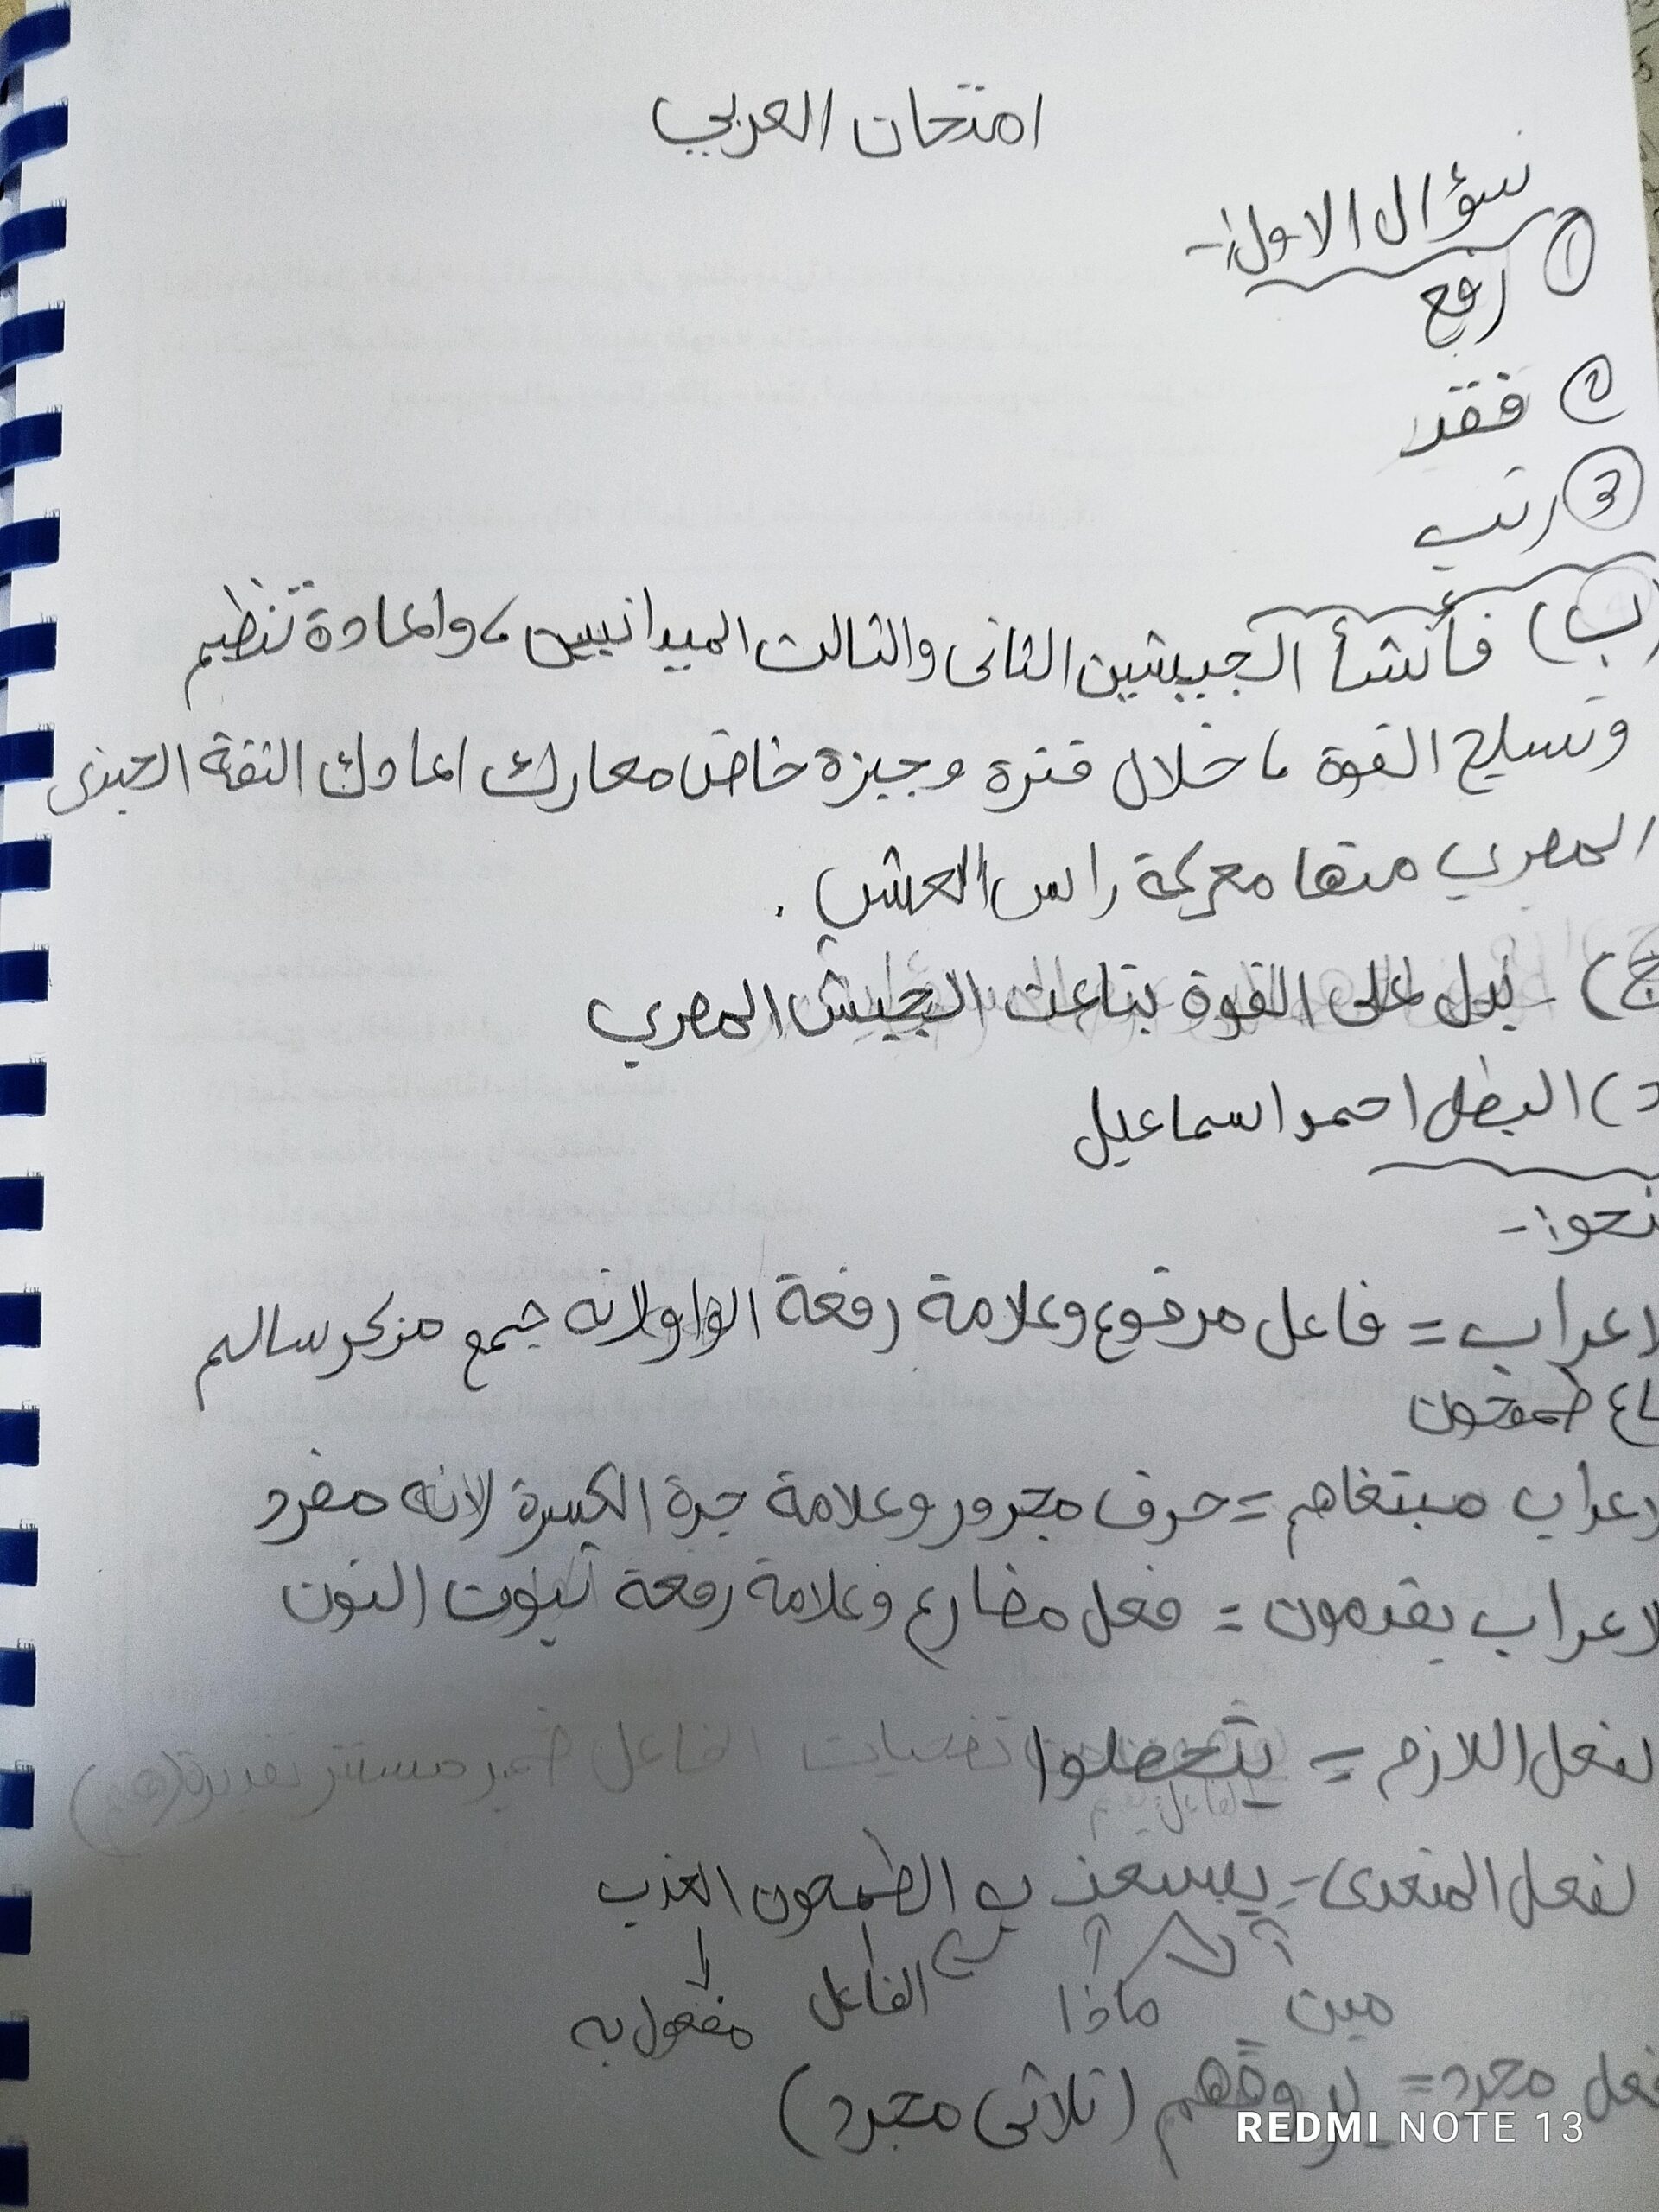 امتحان العربي
سؤال الاول:-
① رفع
② فقد
③ رتب
(ب) فأنشأ الجيشين الثاني والثالث الميدانيين، واعادة تنظيم
وتسليح القوة، خلال فترة وجيزة خاض معارك اعادت الثقة الجندى
المصري منها معركة راس العش.
ج) يدل على القوة بتاعت الجيش المصري
د) البطل احمد اسماعيل
نحو:-
اعراب = فاعل مرفوع وعلامة رفعة الواو لانه جمع مزكر سالم
طمحون
اعراب مبتغاهم = حرف مجرور وعلامة جرة الكسرة لانه مفرد
لاعراب يقدمون = فعل مضارع وعلامة رفعة ثبوت النون
لفعل اللازم = يتحملوا تضحيات الفاعل ضمير مستتر تقديرة (هم)
لفعل المتعدى - يستعذب الطمحون العذب
مين ماذا الفاعل مفعول به
فعل مجرد = (ثلاثى مجرد)
REDMI NOTE 13